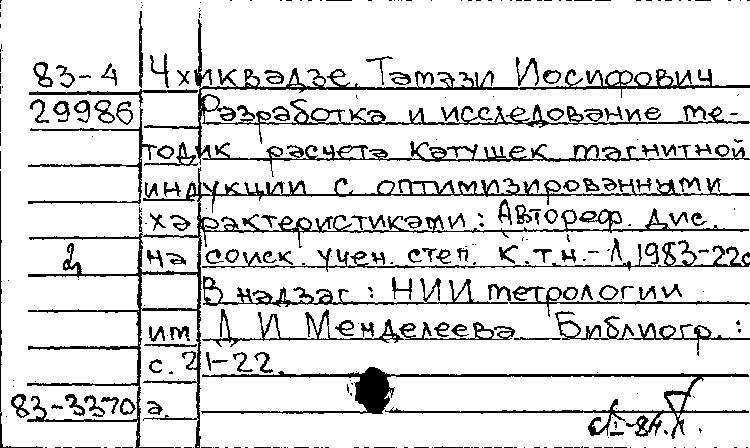 83-4 Чхиквадзе, Тамази Иосифович
29986 Разработка и исследование ме-
тодик расчета катушек магнитной
индукции с оптимизированными
характеристиками: Автореф. дис.
на соиск. учен. степ. к.т.н. - Л, 1983-22с
В надзаг: НИИ метрологии
им Д И Менделеева Библиогр.:
с. 21-22.
83-3370 а.